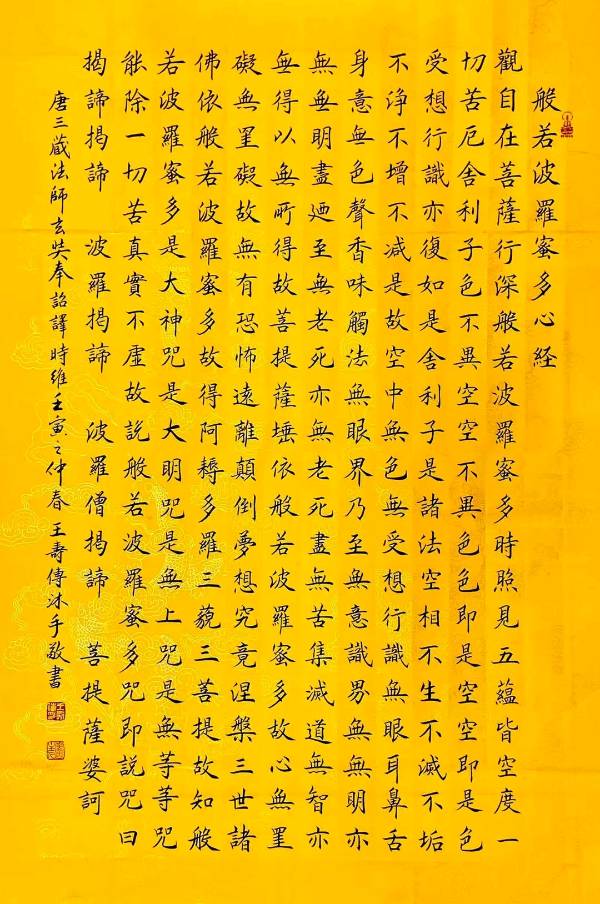 般若波羅蜜多心経
觀自在菩薩行深般若波羅蜜多時照見五蘊皆空度一
切苦厄舍利子色不異空空不異色色即是空空即是色
受想行識亦復如是舍利子是諸法空相不生不滅不垢
不淨不增不减是故空中無色無受想行識無眼耳鼻舌
身意無色聲香味觸法無眼界乃至無意識界無無明亦
無無明盡廼至無老死亦無老死盡無苦集滅道無智亦
無得以無所得故菩提薩埵依般若波羅蜜多故心無罣
礙無罣礙故無有恐怖遠離顛倒夢想究竟涅槃三世諸
佛依般若波羅蜜多故得阿耨多羅三藐三菩提故知般
若波羅蜜多是大神咒是大明咒是無上咒是無等等咒
能除一切苦真實不虛故說般若波羅蜜多咒即說咒曰
揭諦揭諦 波羅揭諦 波羅僧揭諦 菩提薩婆訶
唐三蔵法師玄奘奉詔譯時維壬寅之仲春王壽傳沐手敬書